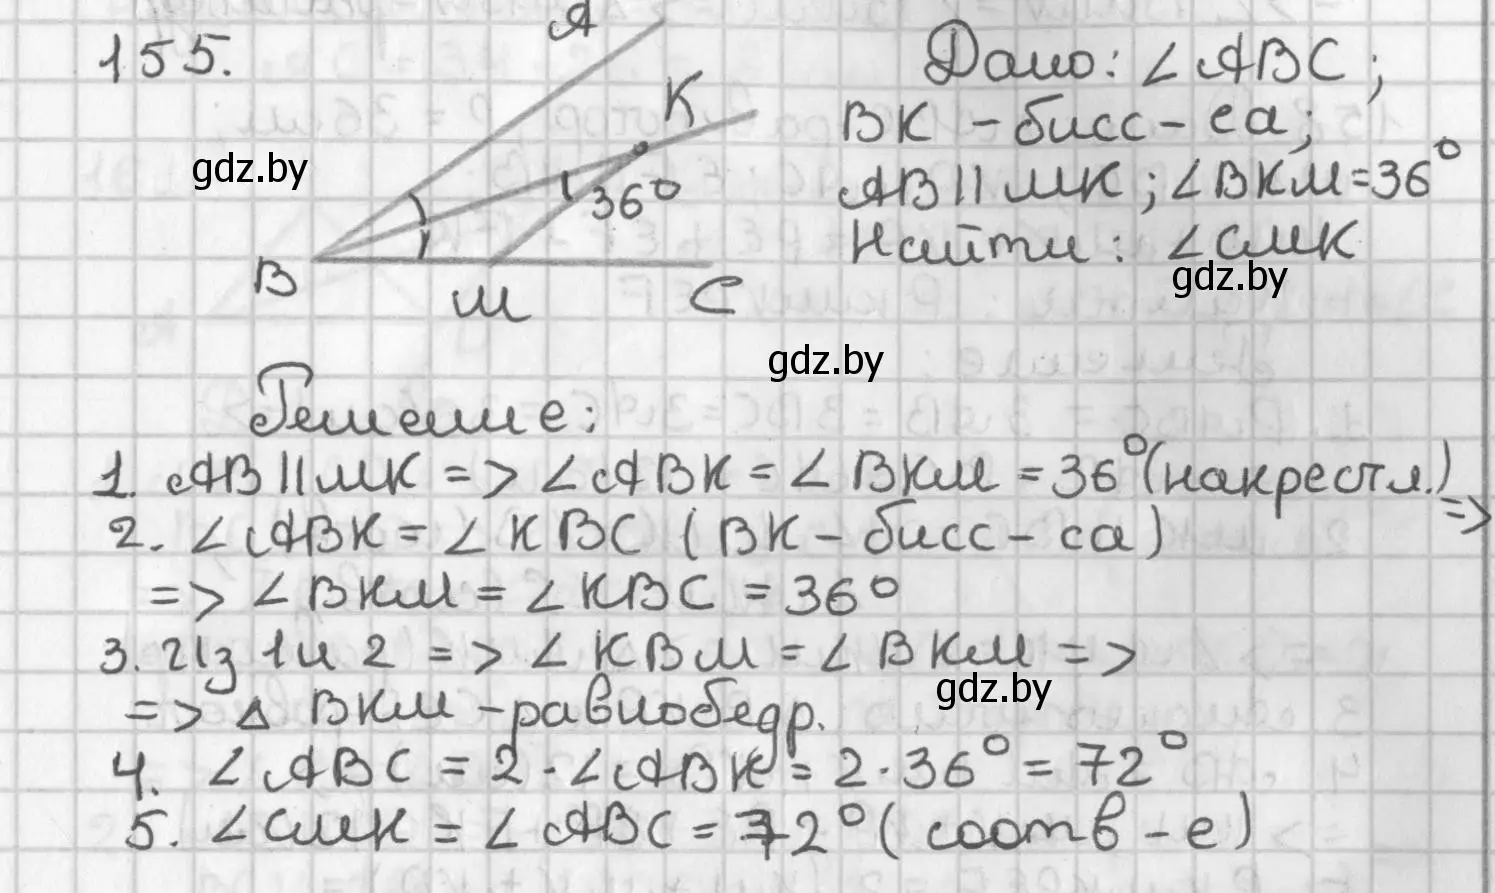 155.
A
K
36°
B
M
C
gdz.by
Дано: ∠ABC;
BK - бисс-са;
AB||MK; ∠BKM=36°
Найти: ∠CMK
gdz.by
gdz.by
Решение:
1. AB||MK => ∠ABK = ∠BKM = 36° (накрест л.) =>
2. ∠ABK = ∠KBC (BK - бисс-са)
=> ∠BKM = ∠KBC = 36°
3. Из 1 и 2 => ∠KBM = ∠BKM =>
gdz.by
=> △ BKM - равнобедр.
4. ∠ABC = 2·∠ABK = 2·36° = 72°
5. ∠CMK = ∠ABC = 72° (соотв-е)